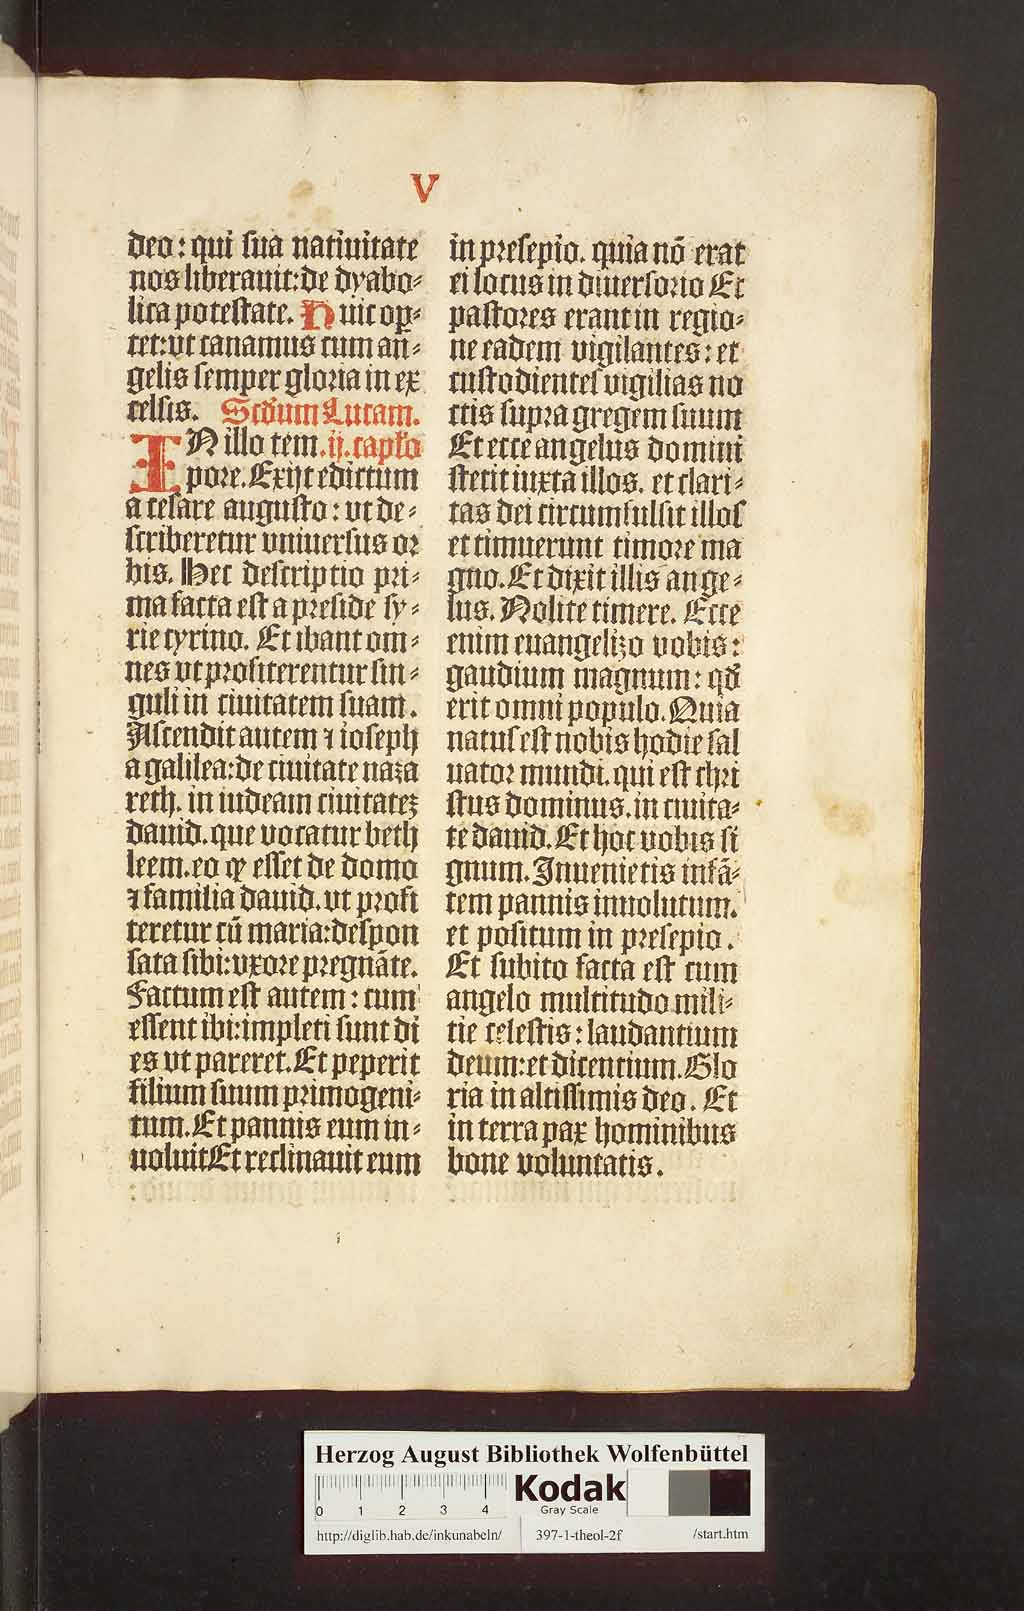 V
deo: qui sua natiuitate
nos liberauit: de dyabo⸗
lica potestate. Huic op̱⸗
tet: vt canamus cum an⸗
gelis semper gloria in ex
celsis. Scd̄um Lucam.
IN illo tem .ij. capl̄o
pore. Exijt edictum
a cesare augusto: vt de⸗
scriberetur vniuersus or
bis. Hec descriptio pri⸗
ma facta est a preside sy⸗
rie cyrino. Et ibant om⸗
nes vt profiterentur sin⸗
guli in ciuitatem suam.
Ascendit autem ⁊ ioseph
a galilea: de ciuitate naza
reth. in iudeam ciuitateꝫ
dauid. que vocatur beth
leem. eo ꝙ esset de domo
⁊ familia dauid. vt profi
teretur cū maria: despon
sata sibi: vxore pregnāte.
Factum est autem: cum
essent ibi: impleti sunt di
es vt pareret. Et peperit
filium suum primogeni⸗
tum. Et pannis eum in⸗
uoluit Et reclinauit eum
in presepio. quia nō erat
ei locus in diuersorio Et
pastores erant in regio⸗
ne eadem vigilantes: et
custodientes vigilias no
ctis supra gregem suum
Et ecce angelus domini
stetit iuxta illos. et clari⸗
tas dei circumfulsit illos
et timuerunt timore ma
gno. Et dixit illis ange⸗
lus. Nolite timere. Ecce
enim euangelizo vobis:
gaudium magnum: qd̄
erit omni populo. Quia
natus est nobis hodie sal
uator mundi. qui est chri
stus dominus. in ciuita⸗
te dauid. Et hoc vobis si
gnum. Inuenietis infā⸗
tem pannis inuolutum.
et positum in presepio.
Et subito facta est cum
angelo multitudo mili⸗
tie celestis: laudantium
deum: et dicentium. Glo
ria in altissimis deo. Et
in terra pax hominibus
bone voluntatis.
Herzog August Bibliothek Wolfenbüttel
0 1 2 3 4
Kodak
Gray Scale
http://diglib.hab.de/inkunabeln/ 397-1-theol-2f /start.htm